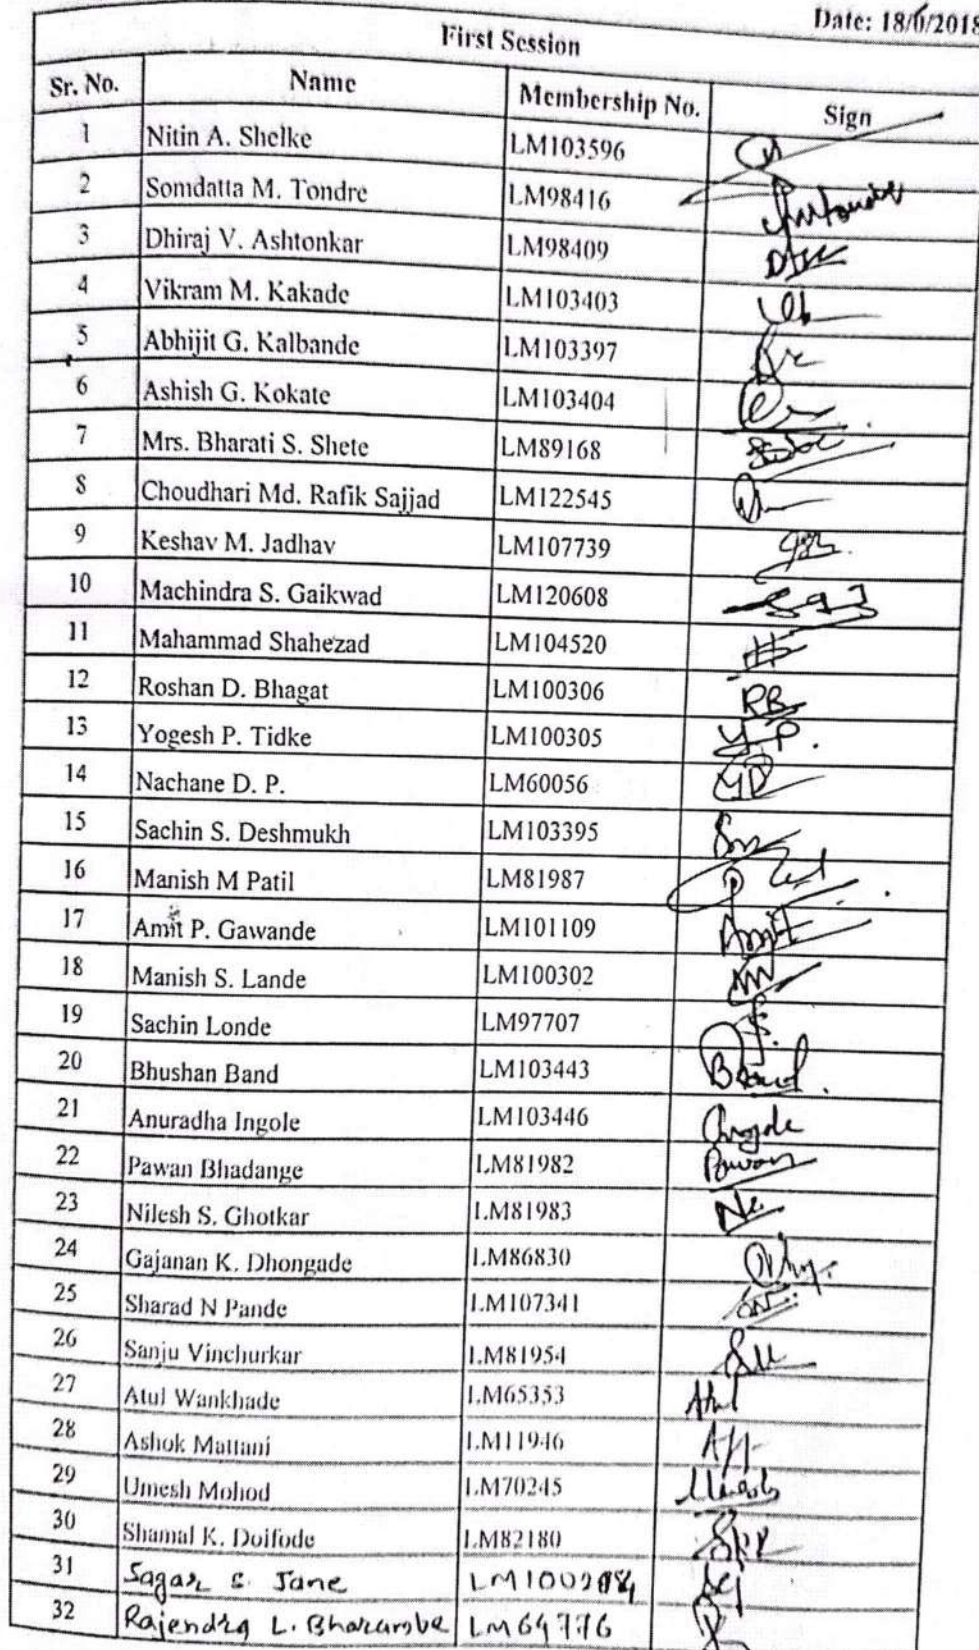 Date: 18/6/2018
First Session
Sr. No. Name Membership No. Sign
1 Nitin A. Shelke LM103596
2 Somdatta M. Tondre LM98416
3 Dhiraj V. Ashtonkar LM98409
4 Vikram M. Kakade LM103403
5 Abhijit G. Kalbande LM103397
6 Ashish G. Kokate LM103404
7 Mrs. Bharati S. Shete LM89168
8 Choudhari Md. Rafik Sajjad LM122545
9 Keshav M. Jadhav LM107739
10 Machindra S. Gaikwad LM120608
11 Mahammad Shahezad LM104520
12 Roshan D. Bhagat LM100306 RB
13 Yogesh P. Tidke LM100305
14 Nachane D. P. LM60056
15 Sachin S. Deshmukh LM103395
16 Manish M Patil LM81987
17 Amit P. Gawande LM101109 Amit
18 Manish S. Lande LM100302
19 Sachin Londe LM97707
20 Bhushan Band LM103443 BBand.
21 Anuradha Ingole LM103446
22 Pawan Bhadange LM81982 Pawan
23 Nilesh S. Ghotkar LM81983
24 Gajanan K. Dhongade LM86830
25 Sharad N Pande LM107341
26 Sanju Vinchurkar LM81954
27 Atul Wankhade LM65353 Atul
28 Ashok Mattani LM11946
29 Umesh Mohod LM70245
30 Shamal K. Doifode LM82180
31 Sagar S. Jane
32 Rajendra L. Bharambe LM64776